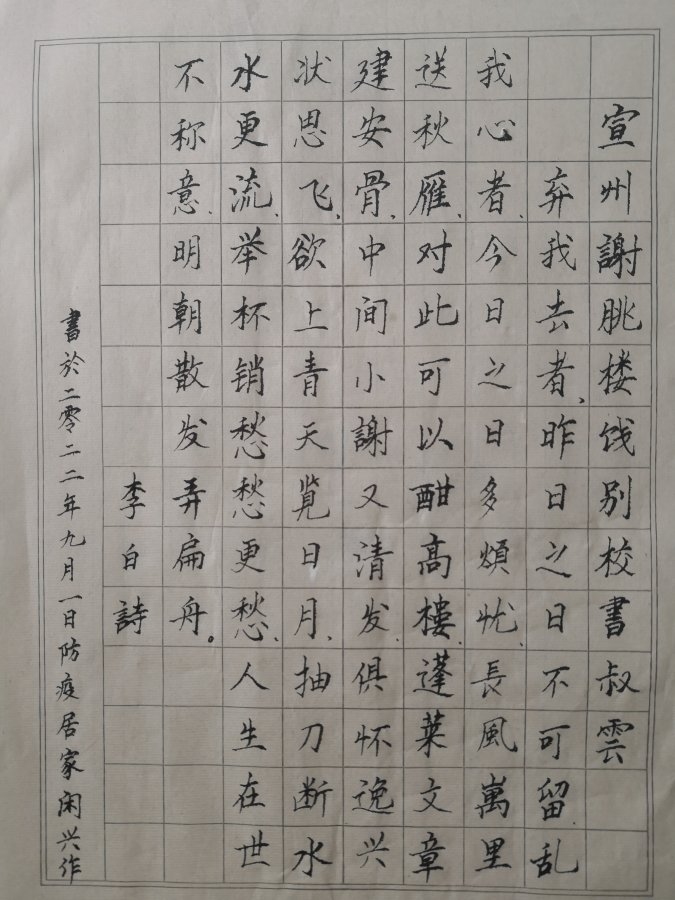 宣州謝朓楼饯别校書叔雲
弃我去者、昨日之日不可留.乱
我心者、今日之日多煩忧、長風萬里
送秋雁、对此可以酣高樓、蓬莱文章
建安骨、中间小謝又清发、俱怀逸兴
状思飞、欲上青天览日月、抽刀断水
水更流、举杯销愁愁更愁、人生在世
不称意、明朝散发弄扁舟。
李白詩
書於二零二二年九月一日防疫居家闲兴作